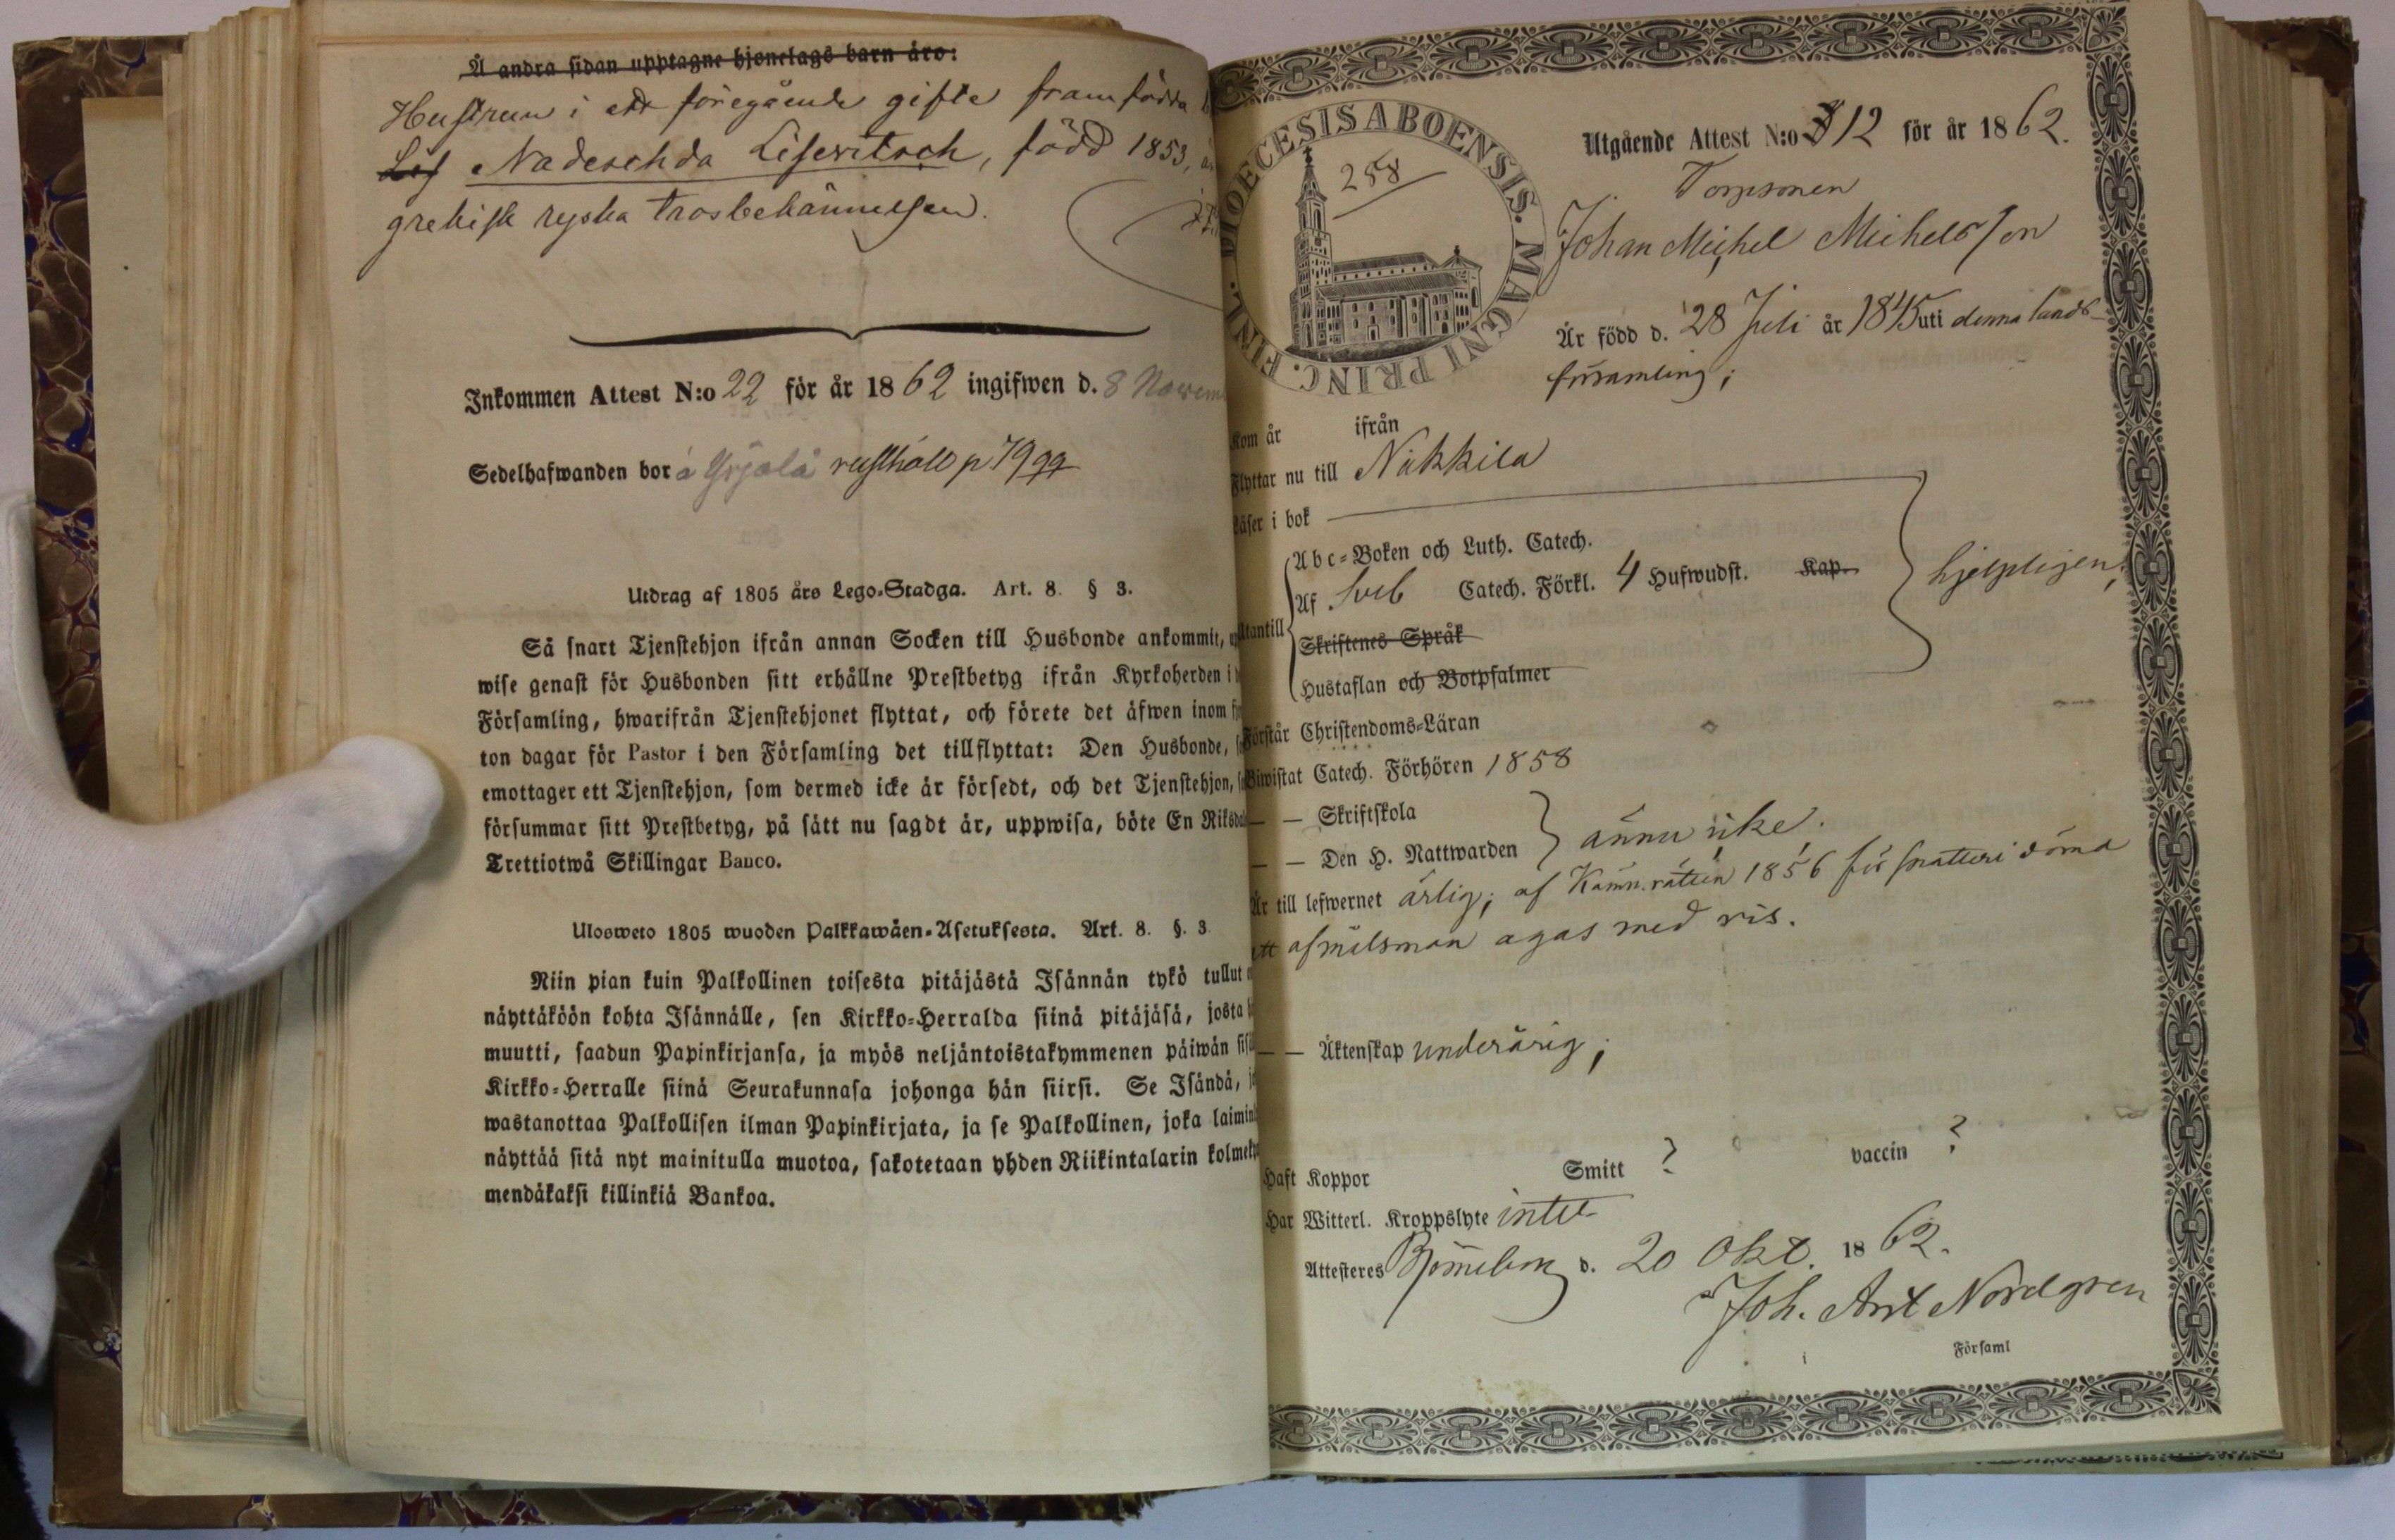 Å andra sidan upptagne hjonelags barn äro:
Hustrun i ett föregående gifte framfödda
Lis Nadeschda Lisewitsch, född 1853,
grekisk ryska trosbekännelsen.
Inkommen Attest N:o 22 för år 1862 ingifwen d. 8 Novem
Sedelhafwanden bor å Yrjälä rusthåll p 79
Utdrag af 1805 års Lego-Stadga. Art. 8. § 3.
Så snart Tjenstehjon ifrån annan Socken till Husbonde ankommit,
wise genast för Husbonden sitt erhållne Prestbetyg ifrån Kyrkoherden i
Församling, hwarifrån Tjenstehjonet flyttat, och förete det äfwen inom
ton dagar för Pastor i den Församling det tillflyttat: Den Husbonde,
emottager ett Tjenstehjon, som dermed icke är försedt, och det Tjenstehjon,
försummar sitt Prestbetyg, på sätt nu sagdt är, uppwisa, böte En Riksda
Trettiotwå Skillingar Banco.
Ulosweto 1805 wuoden Palkkawäen-Asetuksesta. Art. 8. §. 3
Niin pian kuin Palkollinen toisesta pitäjästä Isännän tykö tullut
näyttäköön kohta Isännälle, sen Kirkko-Herralda siinä pitäjäsä, josta
muutti, saadun Papinkirjansa, ja myös neljäntoistakymmenen päiwän
Kirkko-Herralle siinä Seurakunnasa johonga hän siirsi. Se Isändä,
wastanottaa Palkollisen ilman Papinkirjata, ja se Palkollinen, joka laimin
näyttää sitä nyt mainitulla muotoa, sakotetaan yhden Riikintalarin kolmek
mendäkaksi killinkiä Bankoa.
DIOECESIS ABOENSIS. MAGNI PRINC. FINL.
258
Utgående Attest N:o 312 för år 1862.
Johan Michel Michelsson
Är född d. 28 Juli år 1845 uti denna lands-
församling;
Kom år ifrån
Flyttar nu till Nakkila
Läser i bok
Utantill
Abc-Boken och Luth. Catech.
Af Sveb Catech. Förkl. 4 Hufwudst. Kap.
Skriftenes Språk
Hustaflan och Botpsalmer
hjelpligen;
Förstår Christendoms-Läran
Biwistat Catech. Förhören 1858
— — Skriftskola
— — Den H. Nattwarden
ännu icke.
Är till lefwernet ärlig; af Kämn.rätten 1856 för snatteri dömd
att af målsman agas med ris.
— — Äktenskap underårig;
Haft Koppor Smitt ? vaccin ?
Har Witterl. Kroppslyte intet
Attesteres Björneborg d. 20 Okt. 1862.
Joh. Ant Nordgren
i Församl